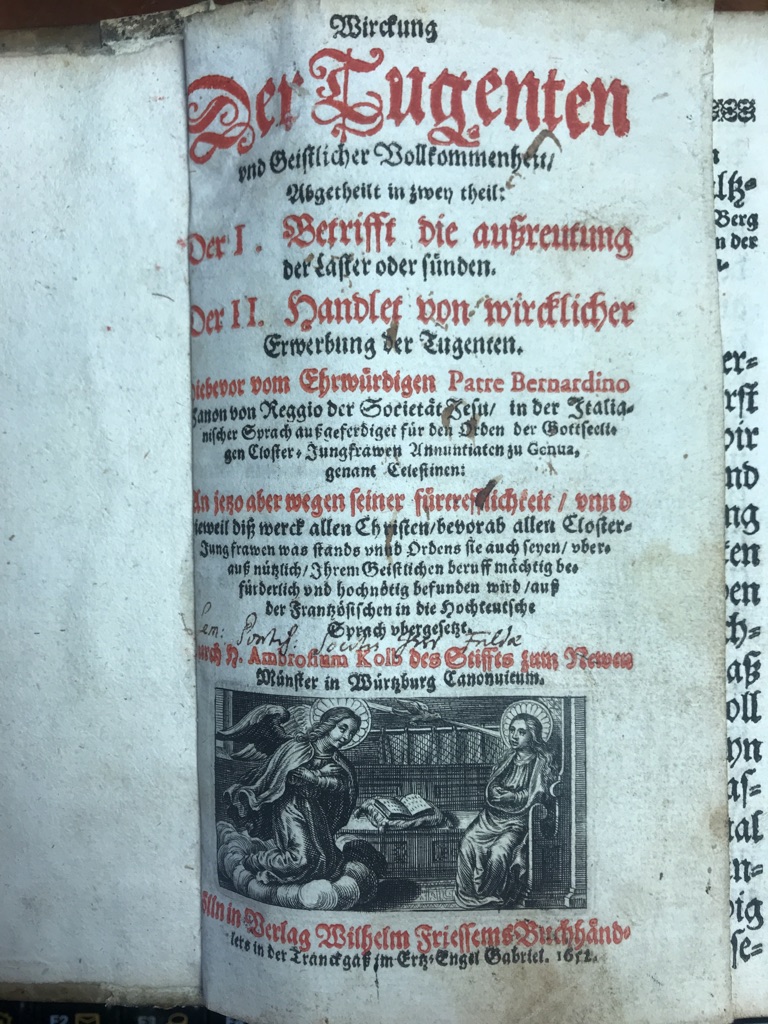 Wirckung
Der Tugenten
vnd Geistlicher Vollkommenheit/
Abgetheilt in zwey theil:
Der I. Betrifft die außreutung
der Laster oder sünden.
Der II. Handlet von wircklicher
Erwerbung der Tugenten.
hiebevor vom Ehrwürdigen Patre Bernardino
von Reggio der Societät Jesu/ in der Italia-
nischer Sprach außgefertiget für den Orden der Gottseeli-
gen Closter-Jungfrawen Annuntiaten zu Genua,
genant Celestinen:
An jetzo aber wegen seiner fürtrefflichkeit / vnnd
dieweil diß werck allen Christen/bevorab allen Closter-
Jungfrawen was stands vnnd Ordens sie auch seyen/ vber-
auß nützlich/ Ihrem Geistlichen beruff mächtig be-
fürderlich vnd hochnötig befunden wird/auß
der Frantzösischen in die Hochteutsche
Sprach vbergesetzt.
Durch H. Ambrosium Kolb des Stiffts zum Newen
Münster in Würtzburg Canonicum.
Cölln in Verlag Wilhelm Friessems Buchhänd-
lers in der Tranckgaß jm Ertz-Engel Gabriel. 1652.
ltz-
Berg
n der
er-
rst
wir
nd
ng
en
en
ch-
aß
oll
yn
as-
al
n-
ig
se-
F2